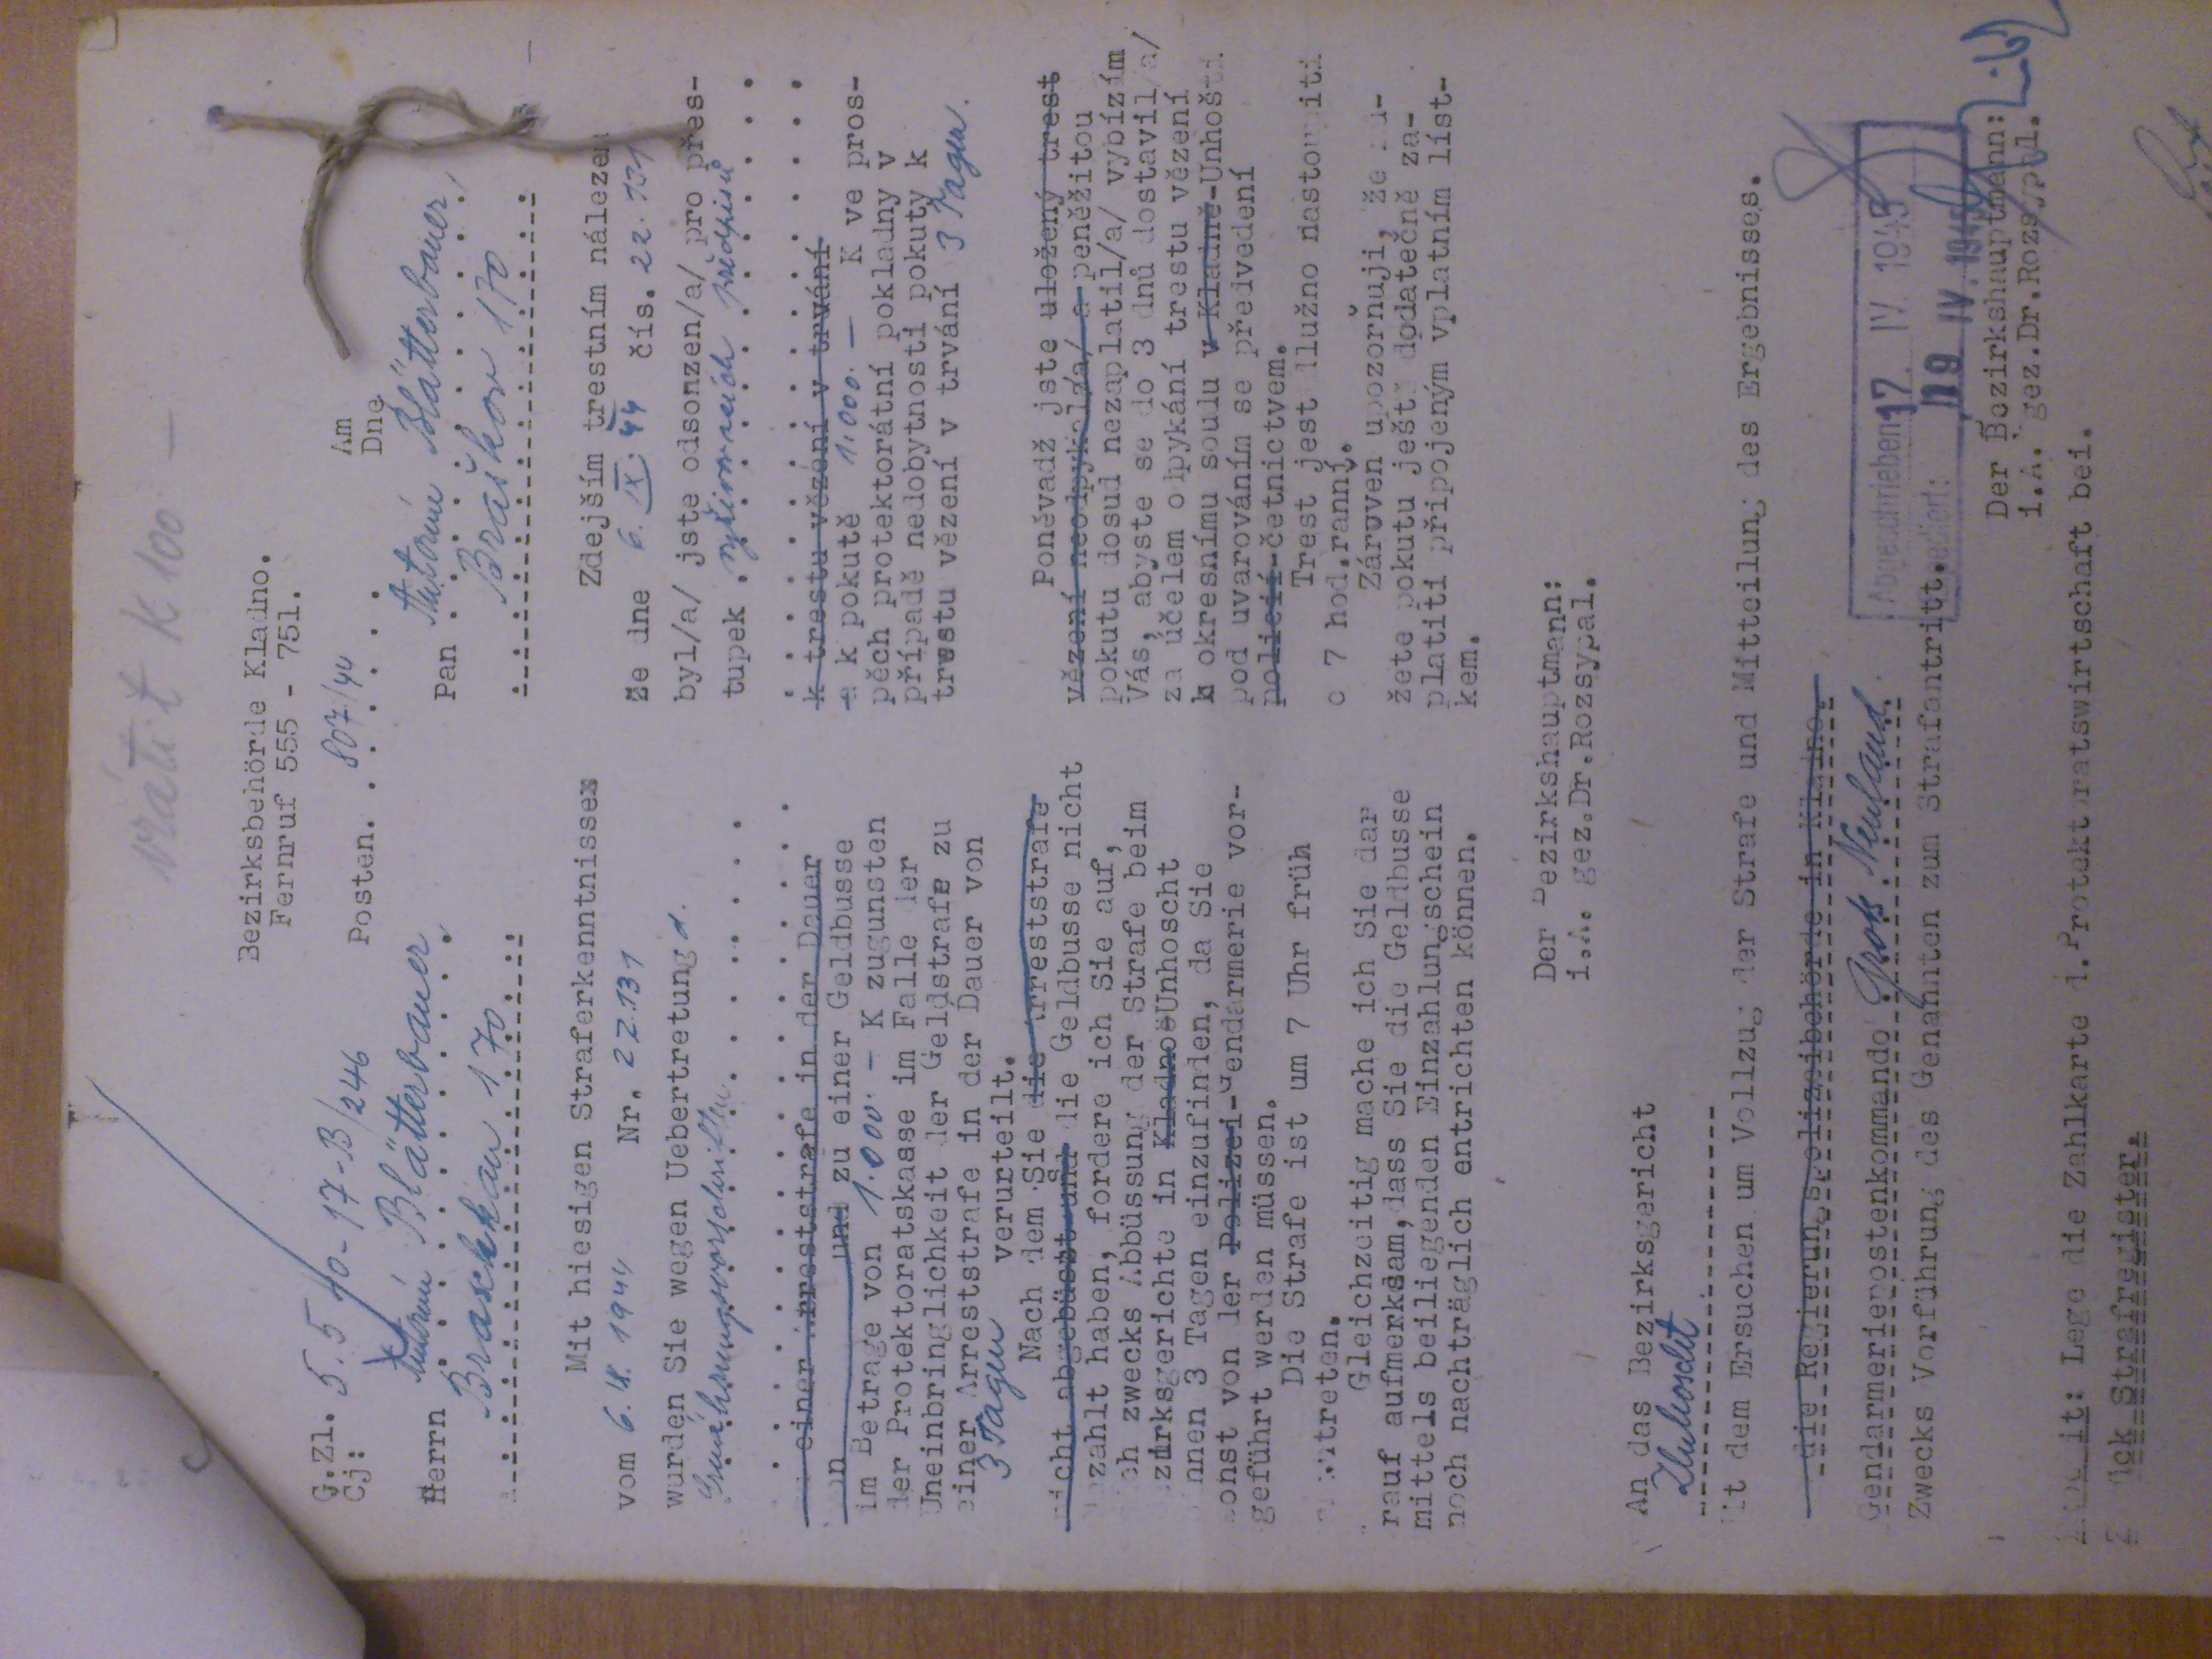 vrátit K 100 —
Bezirksbehörde Kladno.
Fernruf 555 - 751.
G.Zl.
Čj: 5.540-17-B/246
Posten. 807/44
Am
Dne
Herrn Antonín Blätterbauer,
Braschkau 170
Pan Antonín Blätterbauer,
Braškov 170
Mit hiesigen Straferkenntnisse
vom 6. IX. 1944 Nr. 22.131
wurden Sie wegen Uebertretung d.
Ernährungsvorschriften
zu einer Arreststrafe in der Dauer
von und zu einer Geldbusse
im Betrage von 1.000.- K zugunsten
der Protektoratskasse im Falle der
Uneinbringlichkeit der Geldstrafe zu
einer Arreststrafe in der Dauer von
3 Tagen verurteilt.
Nach dem Sie die Arreststrafe
nicht abgebüsst und die Geldbusse nicht
bezahlt haben, fordere ich Sie auf,
sich zwecks Abbüssung der Strafe beim
Bezirksgerichte in Kladno-Unhoscht
binnen 3 Tagen einzufinden, da Sie
sonst von der Polizei-Gendarmerie vor-
geführt werden müssen.
Die Strafe ist um 7 Uhr früh
antreten.
Gleichzeitig mache ich Sie dar
rauf aufmerksam, dass Sie die Geldbusse
mittels beiliegenden Einzahlungschein
noch nachträglich entrichten können.
Zdejším trestním nálezem
ze dne 6. IX. 44 čís. 22.131
byl/a/ jste odsonzen/a/ pro přes-
tupek vyživovacích předpisů
k trestu vězení v trvání
a k pokutě 1.000.— K ve pros-
pěch protektorátní pokladny v
případě nedobytnosti pokuty k
trestu vězení v trvání 3 Tagen.
Poněvadž jste uložený trest
vězení neodpykal/a/ a peněžitou
pokutu dosud nezaplatil/a/ vybízím
Vás, abyste se do 3 dnů dostavil/a/
za účelem odpykání trestu vězení
k okresnímu soudu v Kladně-Unhošti
pod uvarováním se předvedení
policií-četnictvem.
Trest jest dlužno nastoupiti
o 7 hod.ranní.
Zároveň upozorňuji, že mů-
žete pokutu ještě dodatečně za-
platiti připojeným vplatním líst-
kem.
Der Bezirkshauptmann:
i.A. gez.Dr.Rozsypal.
An das Bezirksgericht
Unhoscht
Mit dem Ersuchen um Vollzug der Strafe und Mitteilung des Ergebnisses.
die Regierungspolizeibehörde in Kladno.
Gendarmeriepostenkommando Gross Neuland.
Zwecks Vorführung des Genannten zum Strafantritt.
Abgeschrieben: 17. IV. 1945
Expediert: 19 IV. 1945
Der Bezirkshauptmann:
i.A. gez.Dr.Rozsypal.
Lege die Zahlkarte d.Protektoratswirtschaft bei.
Strafregister.